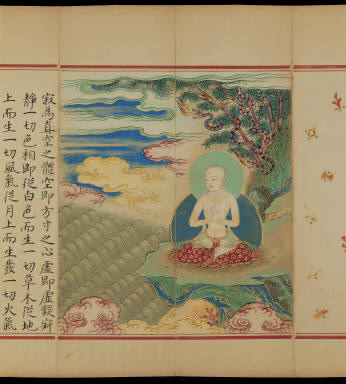 寂為真空之體空即方寸之心虛即虛凝寂
静一切色相即從白色而生一切草木從地
上而生一切風氣從月上而生發一切火氣